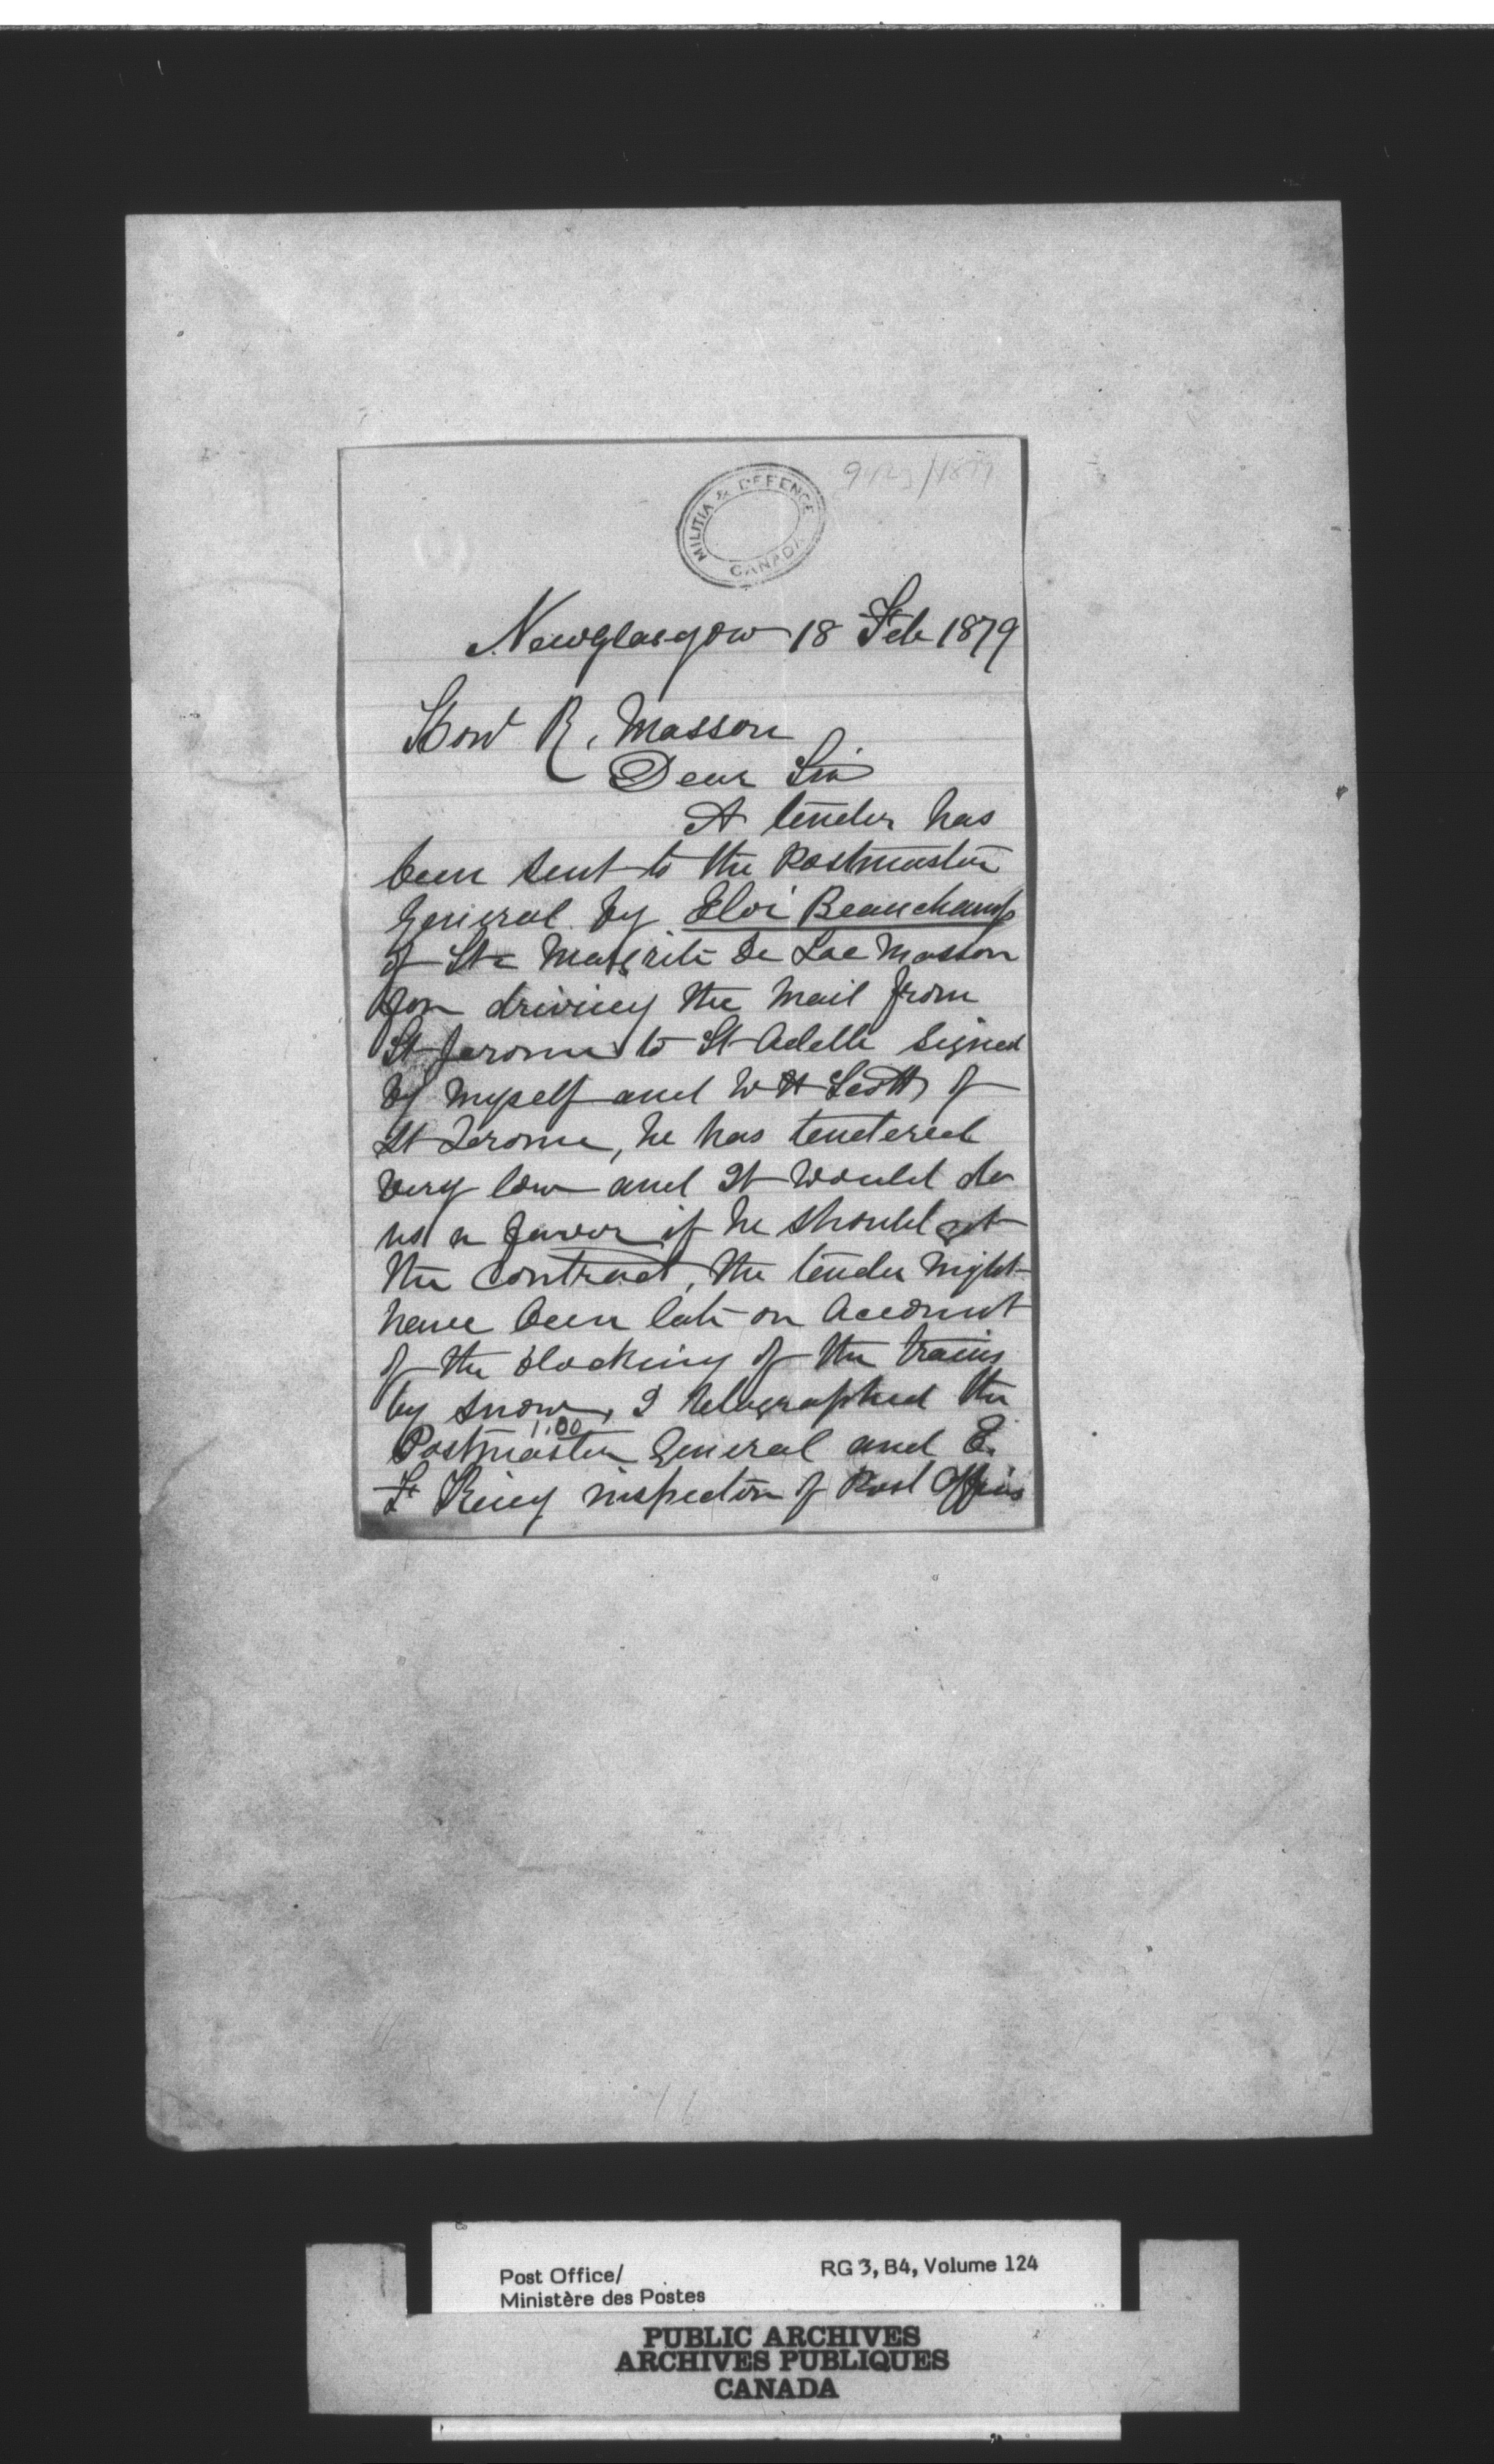 MILITIA & DEFENCE
CANADA
Newglasgow 18 Feb 1879
Hon R. Masson
Dear Sir
A tender has
been sent to the Postmaster
General by Eloi Beauchamp
of Ste Margrite De Lac Masson
for driving the Mail from
St Jerome to St Adelle signed
by myself and W H Scott of
St Jerome, he has tendered
very low and It would do
us a favor if he should get
the contract, the tender might
have been late on account
of the blocking of the trains
by snow, I telegraphed the
1.00
Postmaster General and E.
F King inspector of Post Offices
Post Office/
Ministère des Postes
RG 3, B4, Volume 124
PUBLIC ARCHIVES
ARCHIVES PUBLIQUES
CANADA